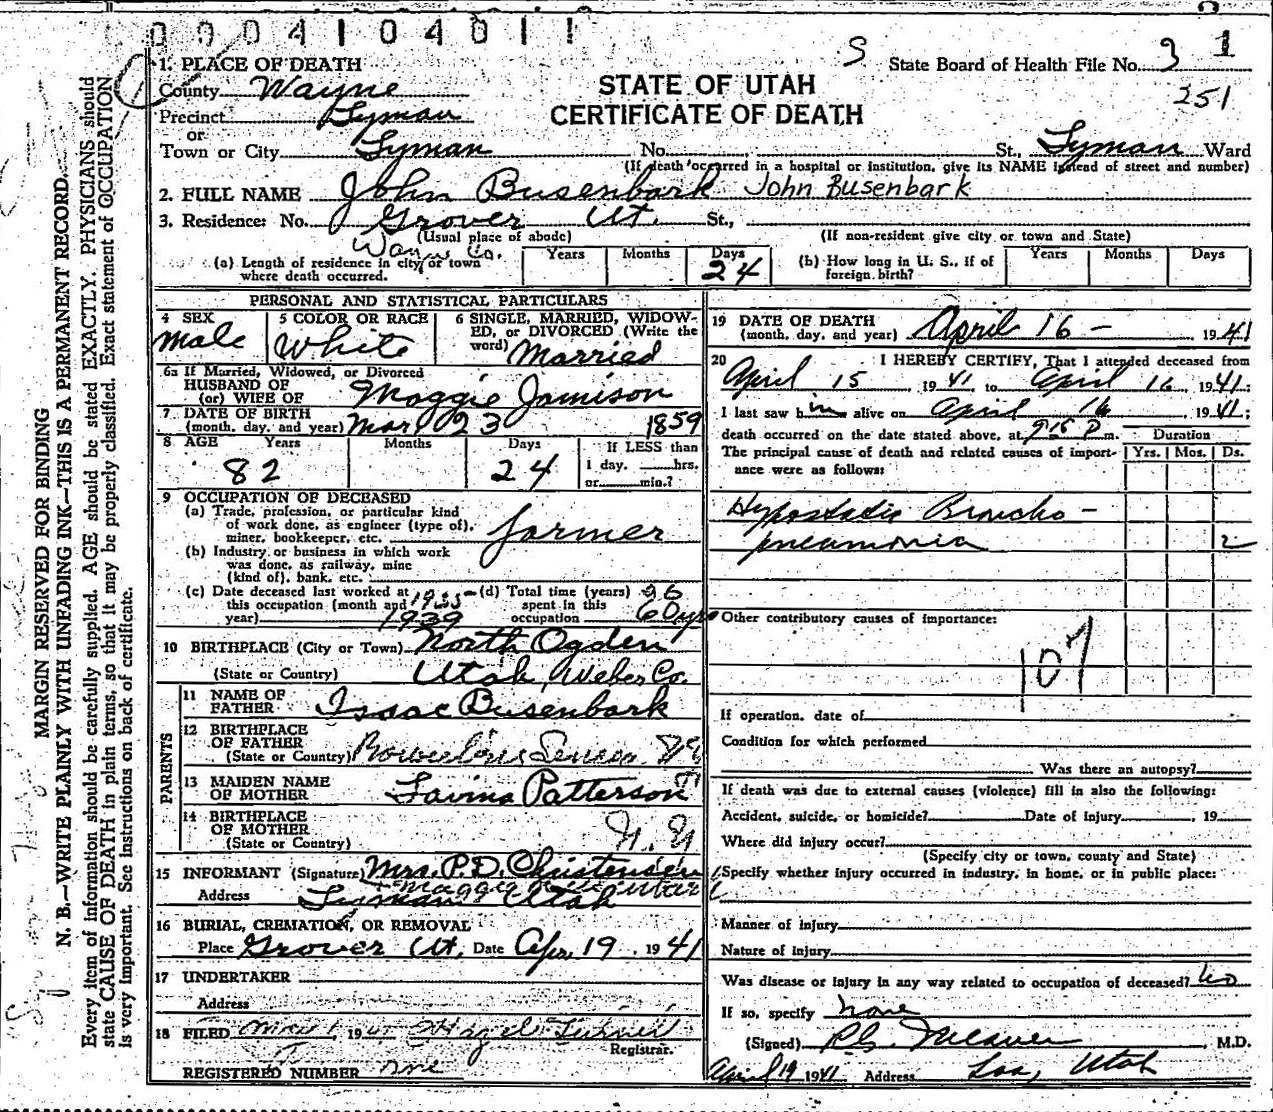 0004104011
S State Board of Health File No. 3 1
251
STATE OF UTAH
CERTIFICATE OF DEATH
1. PLACE OF DEATH
County Wayne
Precinct Lyman
or
Town or City Lyman No. St., Lyman Ward
(If death occurred in a hospital or institution, give its NAME instead of street and number)
2. FULL NAME John Busenbark John Busenbark
3. Residence: No. Grover Ut. St.,
(Usual place of abode) (If non-resident give city or town and State)
Wayne Co.
(a) Length of residence in city or town where death occurred. Years Months Days 24
(b) How long in U. S., if of foreign birth? Years Months Days
PERSONAL AND STATISTICAL PARTICULARS
4 SEX Male
5 COLOR OR RACE White
6 SINGLE, MARRIED, WIDOWED, or DIVORCED (Write the word) Married
6a If Married, Widowed, or Divorced
HUSBAND OF
(or) WIFE OF Maggie Jamison
7 DATE OF BIRTH
(month, day, and year) Mar. 23 1859
8 AGE Years Months Days If LESS than
82 24 1 day, hrs.
or min.?
9 OCCUPATION OF DECEASED
(a) Trade, profession, or particular kind
of work done, as engineer (type of),
miner, bookkeeper, etc. farmer
(b) Industry or business in which work
was done, as railway, mine
(kind of), bank, etc.
(c) Date deceased last worked at
this occupation (month and
year) 1939
(d) Total time (years)
spent in this
occupation 60 yrs
10 BIRTHPLACE (City or Town) North Ogden
(State or Country) Utah, Weber Co.
PARENTS
11 NAME OF
FATHER Isaac Busenbark
12 BIRTHPLACE
OF FATHER
(State or Country)
13 MAIDEN NAME
OF MOTHER Lavina Patterson
14 BIRTHPLACE
OF MOTHER
(State or Country) N. Y
15 INFORMANT (Signature) Mrs. P.D. Christensen
Maggie
Address Lyman Utah
16 BURIAL, CREMATION, OR REMOVAL
Place Grover Ut. Date Apr. 19, 1941
17 UNDERTAKER
Address
18 FILED May 1, 1941 Hazel Turner
Registrar.
REGISTERED NUMBER
19 DATE OF DEATH
(month, day, and year) April 16 - 1941
20 I HEREBY CERTIFY, That I attended deceased from
April 15, 1941 to April 16, 1941;
I last saw him alive on April 16, 1941;
death occurred on the date stated above, at 9:15 P m.
The principal cause of death and related causes of importance were as follows:
Duration
Yrs. Mos. Ds.
Hypostatic Broncho-
pneumonia 2
Other contributory causes of importance:
107
If operation, date of
Condition for which performed
Was there an autopsy?
If death was due to external causes (violence) fill in also the following:
Accident, suicide, or homicide? Date of injury , 19
Where did injury occur?
(Specify city or town, county and State)
Specify whether injury occurred in industry, in home, or in public place:
Manner of injury
Nature of injury
Was disease or injury in any way related to occupation of deceased? No
If so, specify none
(Signed) M.D.
April 19 1941 Address Loa, Utah
MARGIN RESERVED FOR BINDING
N. B.—WRITE PLAINLY WITH UNFADING INK—THIS IS A PERMANENT RECORD.
Every item of information should be carefully supplied. AGE should be stated EXACTLY. PHYSICIANS should
state CAUSE OF DEATH in plain terms, so that it may be properly classified. Exact statement of OCCUPATION
is very important. See instructions on back of certificate.